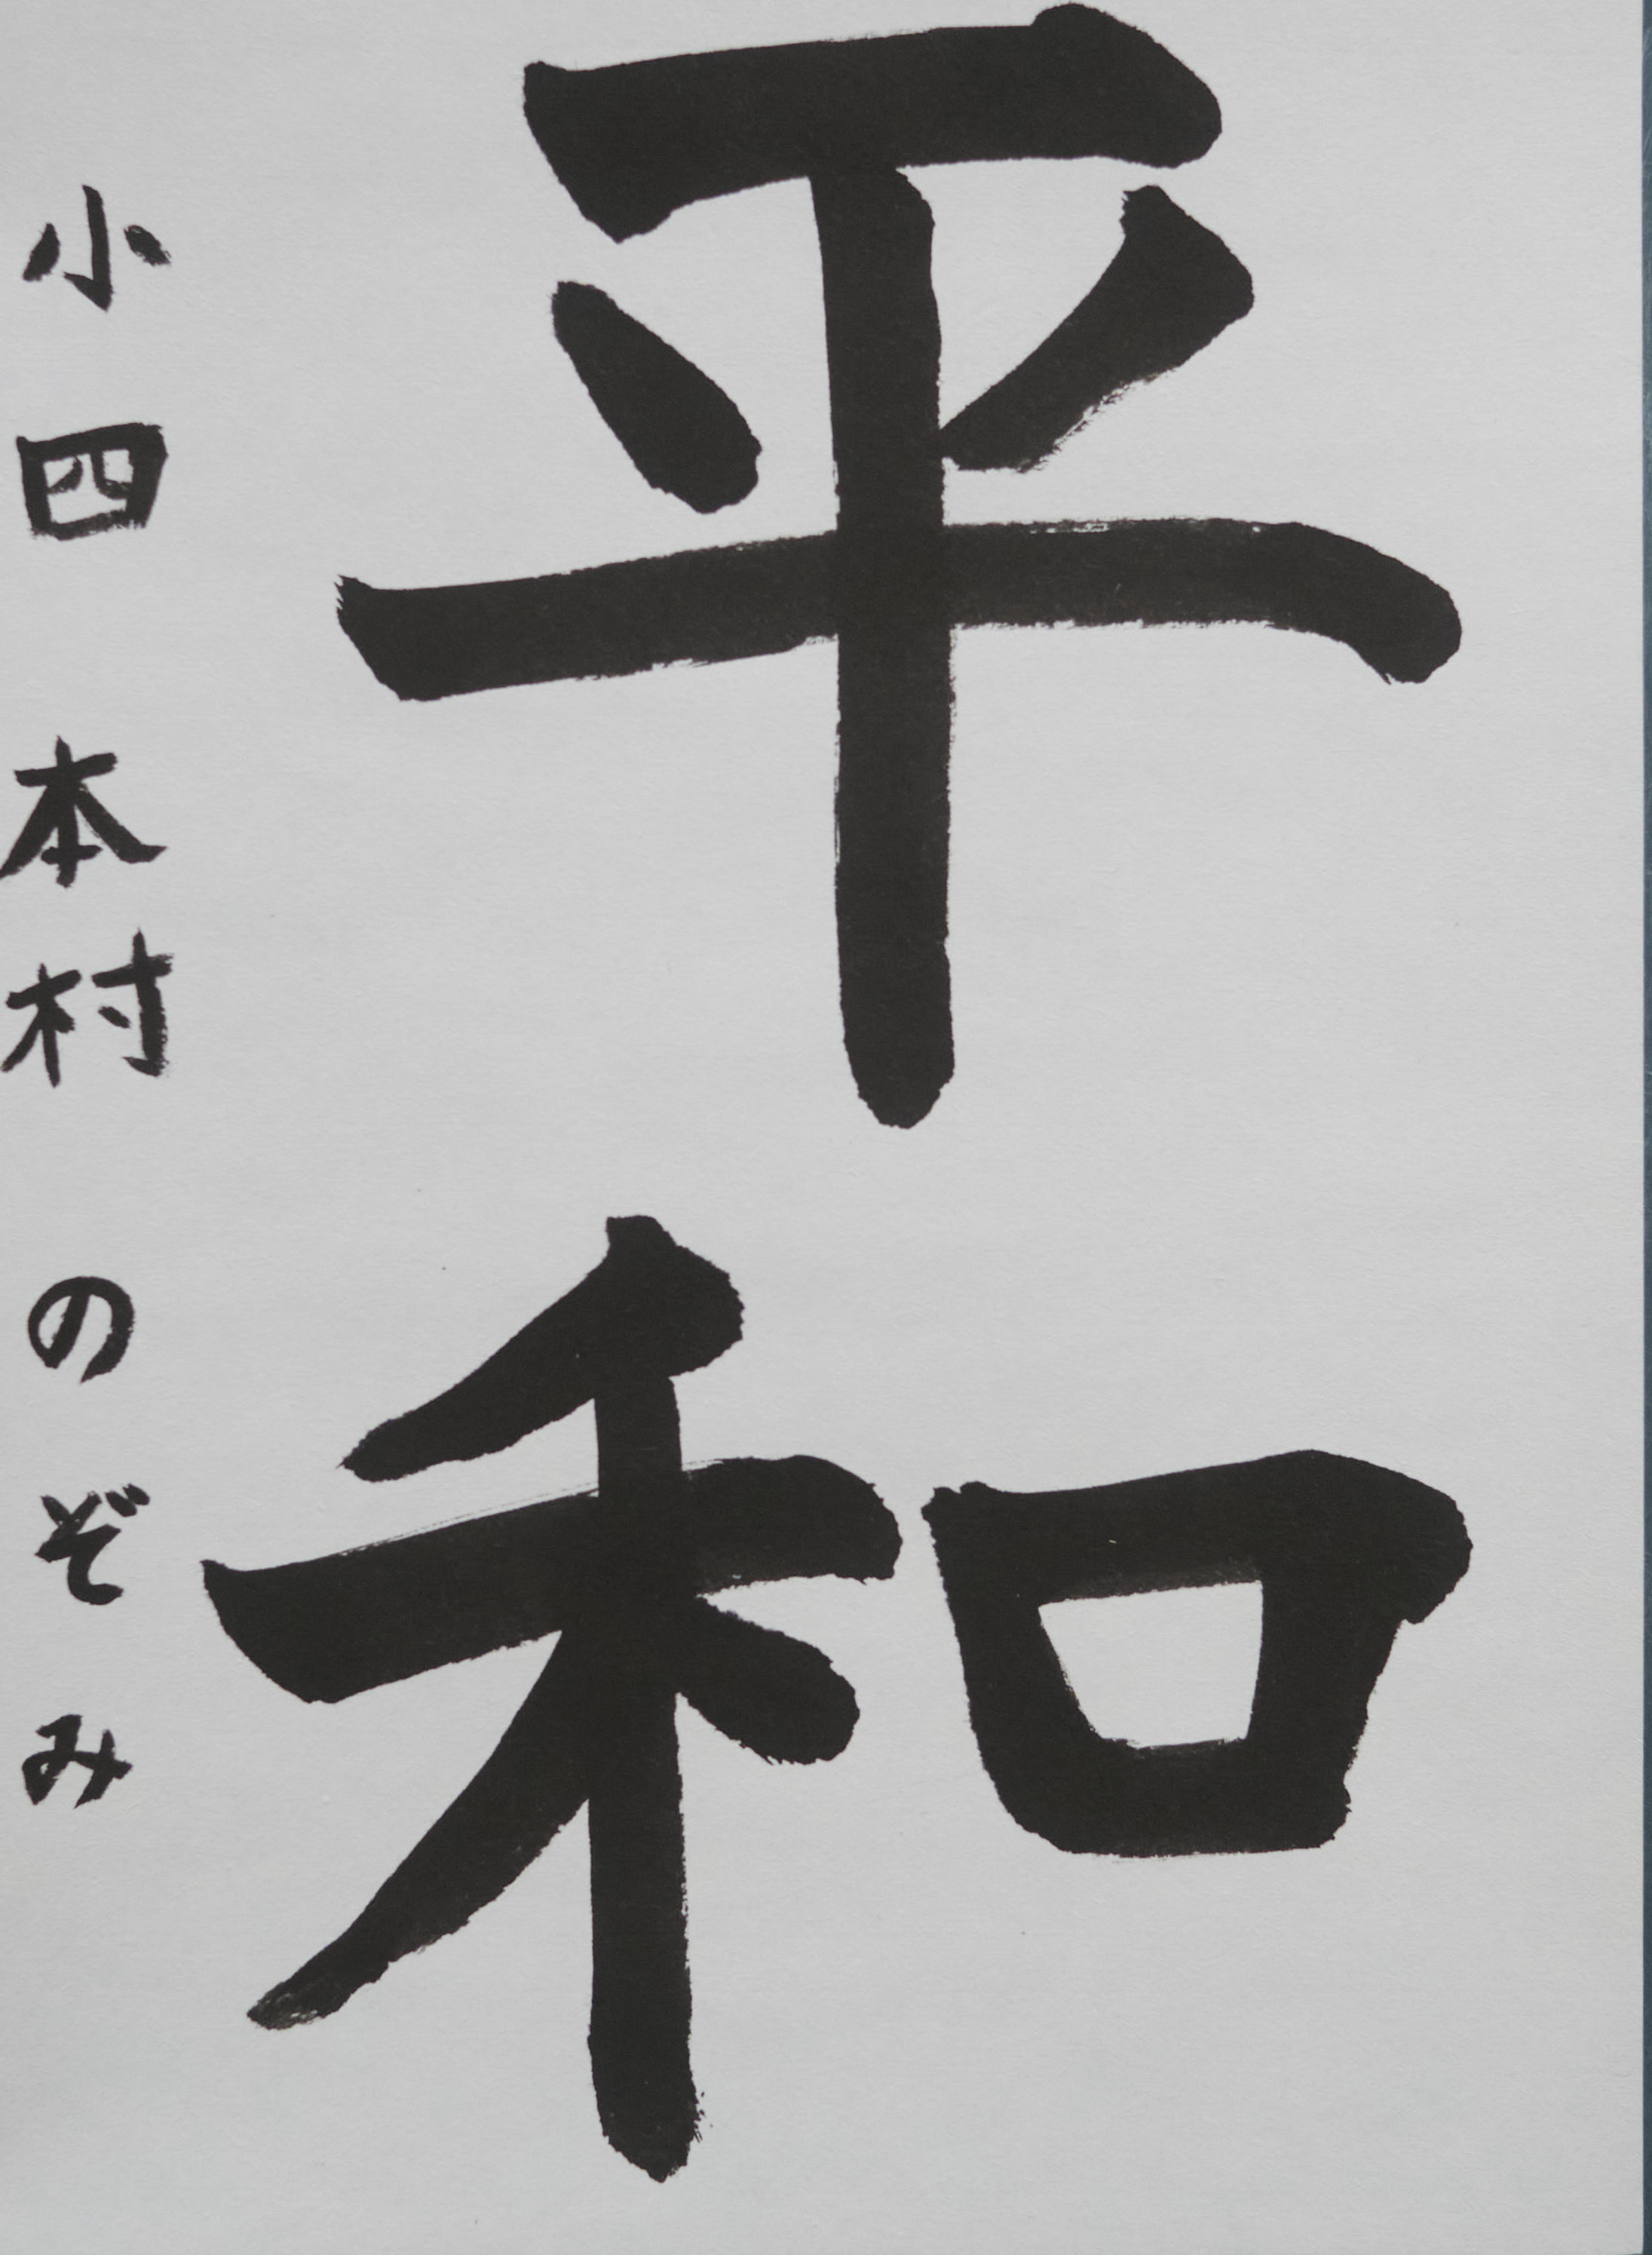 平和
小四 本村 のぞみ